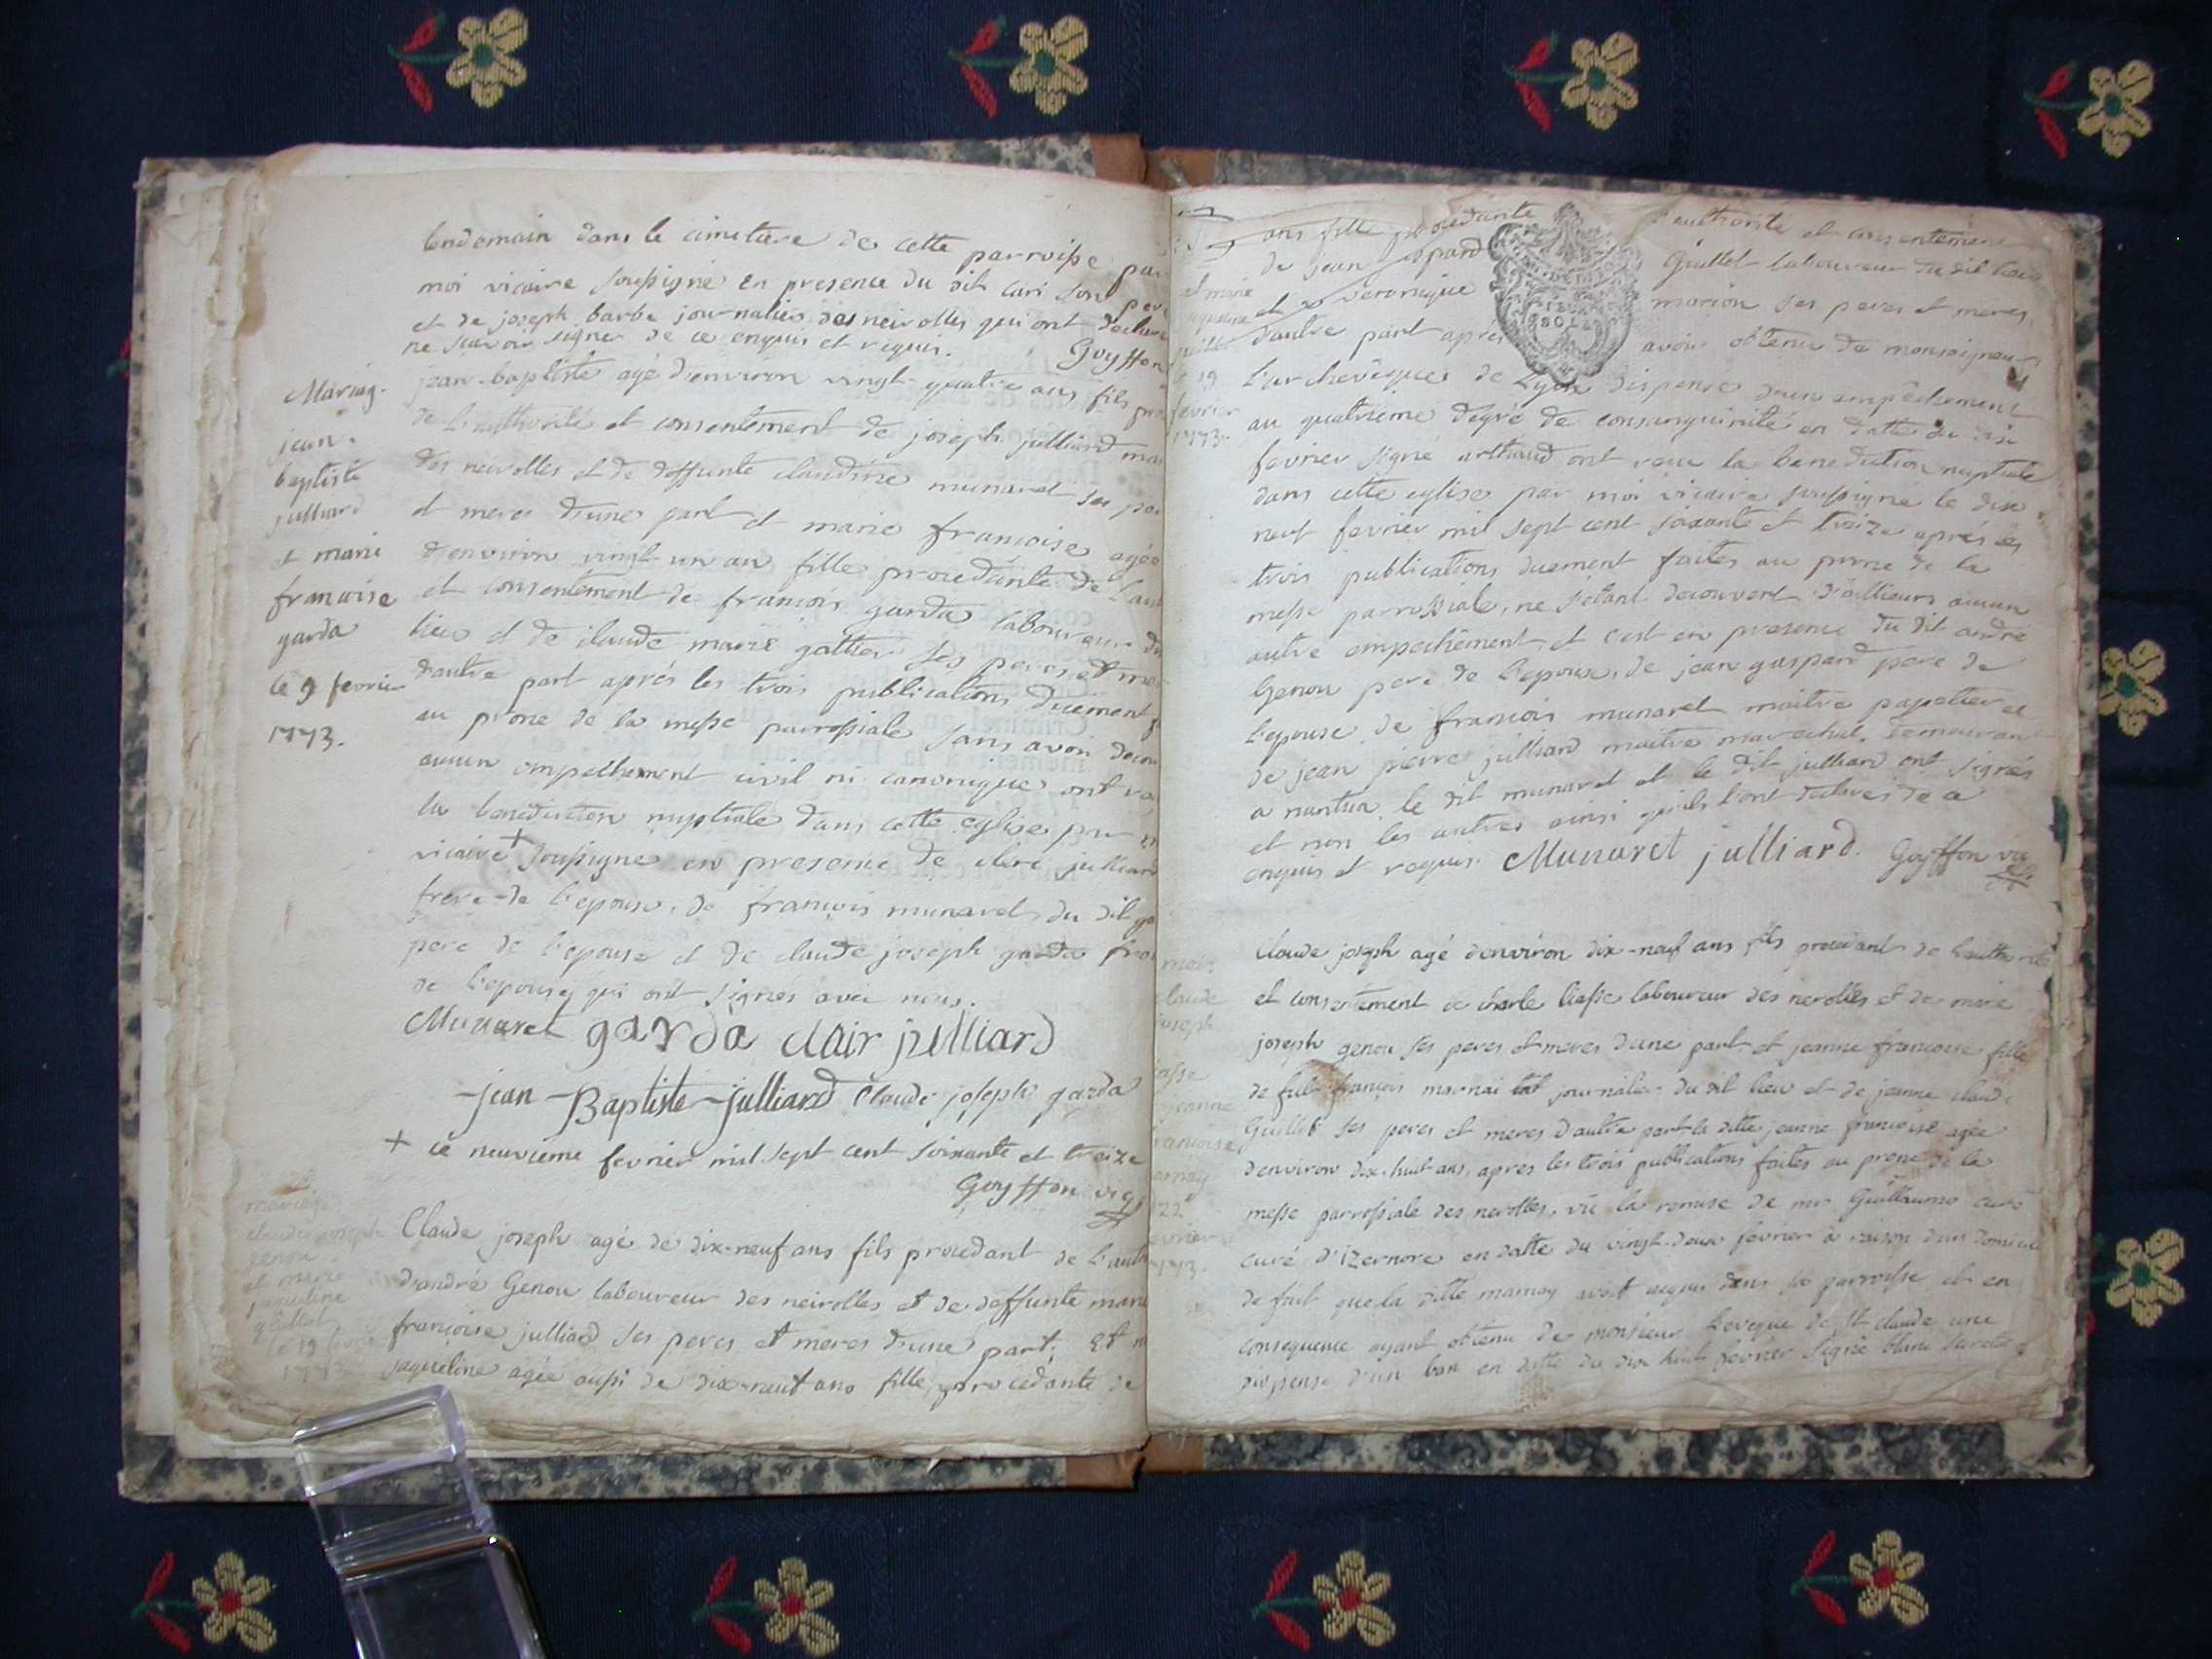 lendemain dans le cimetiere de cette parroisse par
moi vicaire soussigné en presence du dit clari son pere
et de joseph barbe journalier des neirolles qui ont declaré
ne scavoir signer de ce enquis et requis. Goyffon
Mariag.
jean
baptiste
julliard
et marie
francoise
garda
le 9 fevrier
1773.
jean-baptiste agé denviron vingt-quatre ans fils pro
de l'authorité et consentement de joseph julliard
des neirolles et de deffunte claudine munaret ses pe
et meres d'une part et marie francoise agée
d'environ vingt-un an fille procedante de l'aut
et consentement de francois garda laboureur du
lieu et de claude marie gottier ses peres et me
d'autre part aprés les trois publications duement f
au prone de la messe parrossiale sans avoir decou
aucun empechement civil ni canonique ont re
la benediction nuptiale dans cette eglise par m
vicaire + soussigné en presence de clere julliard
frere de l'epoux, de francois munaret du dit ga
pere de l'epouse et de claude joseph garda fre
de l'epouse qui ont signés avec nous.
Munaret garda clair julliard
jean-Baptiste-julliard Claude joseph garda
+ le neuvieme fevrier mil sept cent soixante et treize
Goyffon vic
mariage
claude joseph
genou
et marie
jaqueline
guillot
le 19 fevrier
1773
Claude joseph agé de dix-neuf ans fils procedant de l'auth
d'andré Genou laboureur des neirolles et de deffunte marie
francoise julliard ses peres et meres d'une part; Et m
jaqueline agée aussi de dix-neuf ans fille procedante de
et marie
jaqueline
guillot
le 19
fevrier
1773.
ans fille procedante l'authorité et consentement
de jean gaspard Guillot laboureur du dit lieu
et de veronique marion ses peres et meres
d'autre part aprés avoir obtenu de monseigneur
l'archevêque de Lyon dispense d'un empêchement
au quatrieme degré de consanguinité en datte du dix
fevrier signé arthaud ont recu la benediction nuptiale
dans cette eglise par moi vicaire soussigné le dix
neuf fevrier mil sept cent soixante et treize aprés les
trois publications duement faites au prone de la
messe parrossiale, ne s'etant decouvert d'ailleurs aucun
autre empechement, et c'est en presence du dit andré
Genou pere de l'epoux, de jean gaspard pere de
l'epouse de francois munaret maitre papetier et
de jean pierre julliard maitre marechal demeurant
a nantua le dit munaret et le dit julliard ont signés
et non les autres ainsi qu'ils l'ont declarés de ce
enquis et requis. Munaret julliard. Goyffon vic
claude
joseph
liasse
jeanne
francoise
mornay
22
fevrier
1773.
Claude joseph agé denviron dix-neuf ans fils procedant de l'authorité
et consentement de charle liasse laboureur des nerolles et de marie
joseph genou ses peres et meres d'une part et jeanne francoise fille
de feu françois journalier du dit lieu et de jeanne claude
Guillot ses peres et meres d'autre part la ditte jeanne francoise agée
denviron dix-huit ans, apres les trois publications faites au prone de la
messe parrossiale des nerolles, vu la remise de mr Guillaume curé
curé d'izernore en datte du vingt-deux fevrier à raison d'un domicile
de fait que la ditte mornay avoit acquis dans sa parroisse et en
consequence ayant obtenu de monsieur l'eveque de st claude une
dispense d'un ban en datte du dix huit fevrier signé